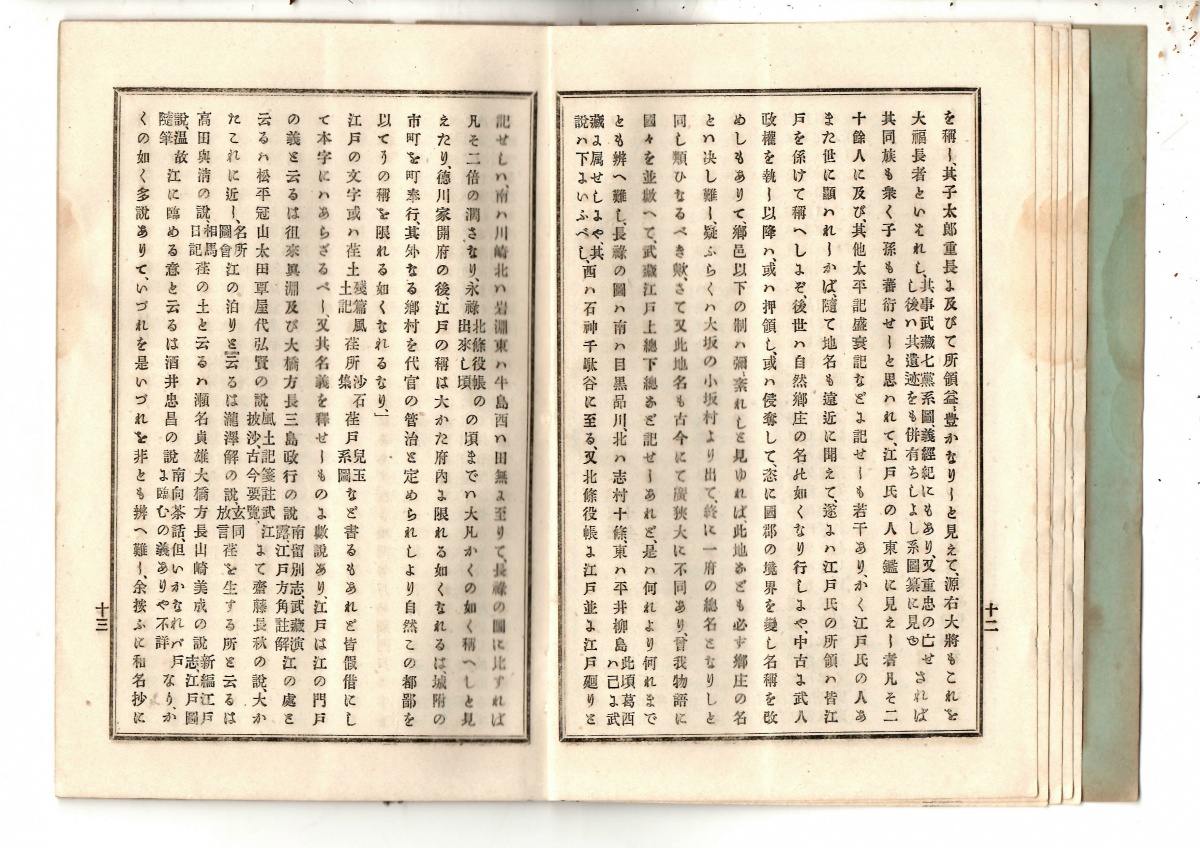 を稱し、其子太郎重長よ及びて所領益〻豊かなりしと見えて、源右大將もこれを
大福長者といそれし、其事武藏七黨系圖義經紀にもあり、又重忠の亡せし後ハ其遺迹をも併有ちしよし系圖纂に見ゆされば
其同族も衆く子孫も蕃衍せしと思ハれて、江戸氏の人東鑑に見えし者凡そ二
十餘人に及び、其他太平記盛衰記などよ記せしも若干あり、かく江戸氏の人あ
また世に顯ハれしかば、隨て地名も遠近に聞えて、遂よハ江戸氏の所領ハ皆江
戸を係けて稱へしよぞ、後世ハ自然鄕庄の名の如くなり行しよや、中古よ武人
政權を執し以降ハ、或ハ押領し、或ハ侵奪して、恣に國郡の境界を變し名稱を改
めしもありて、鄕邑以下の制ハ彌〻紊れしと見ゆれば、此地なども必す鄕庄の名
とハ决し難し、疑ふらくハ大坂の小坂村より出て、終に一府の總名となりしと
同し類ひなるべき歟、さて又此地名も古今にて廣狹大に不同あり、曾我物語に
國々を並敘へて、武藏江戸上總下總など記せしあれど、是ハ何れより何れまで
とも辨へ難し、長祿の圖ハ南ハ目黒品川、北ハ志村十條、東ハ平井柳島此頃葛西ハ己よ武
藏よ属せしよや其說ハ下よいふべし、西ハ石神千駄谷に至る、又北條役帳よ江戸並よ江戸廻りと
十二
記せしハ、南ハ川崎北ハ岩淵東ハ牛島西ハ田無よ至りて、長祿の圖に比すれば
凡そ二倍の濶さなり、永祿北條役帳の出來し頃の頃までハ大凡かくの如く稱へしと見
えたり、德川家開府の後、江戸の稱は大かた府內よ限れる如くなれるは、城附の
市町を町奉行、其外なる鄕村を代官の管治と定められしより自然この都部を
以てうの稱を限れる如くなれるなり、」
江戸の文字或ハ荏土殘篇風土記荏所沙石集荏戸兒玉系圖など書るもあれど皆假借にし
て本字にハあらざるべし、又其名義を釋せしものよ數說あり、江戸は江の門戸
の義と云るは徂來眞淵及び大橋方長三島政行の說南留別志武藏演露江戸方角註解江の處と
云るハ松平冠山太田覃屋代弘賢の說風土記箋註武江披沙、古今要覽、よて齋藤長秋の說、大か
たこれに近し、名所圖會江の泊りと云るは瀧澤解の說玄同放言荏を生する所と云るは
高田與淸の說、相馬日記荏の土と云るハ瀨名貞雄大橋方長山崎美成の說新編江戸志、江戸圖
說溫故隨筆江に臨める意と云るは酒井忠昌の說南向茶話、但いかなれバ戸よ臨むの義ありや不詳なりか
くの如く多說ありて、いづれを是いづれを非とも辨へ難し、余按ふに和名抄に
十三